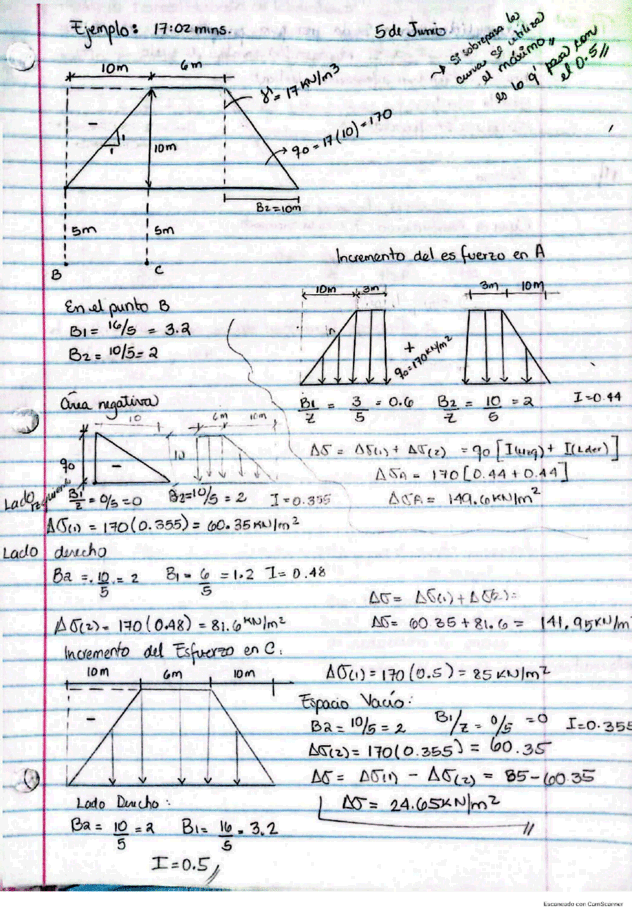 Ejemplo: 17:02 mins.
5 de Junio
→ Si sobrepasa la
curva se utiliza
el máximo //
es lo q'
el 0.5 //
10m
6m
γ = 17 KN/m³
q0 = 17(10) = 170
1
1
10m
B2=10m
5m
5m
B
C
Incremento del esfuerzo en A
En el punto B
B1 = 16/5 = 3.2
B2 = 10/5 = 2
10m
3m
+
q0=170 KN/m²
3m
10m
B1/Z = 3/5 = 0.6
B2/Z = 10/5 = 2
I=0.44
área negativa
10
q0
10
6m
10m
Δσ = Δσ(1) + Δσ(2) = q0 [I(izq) + I(der)]
ΔσA = 170[0.44 + 0.44]
ΔσA = 149.6 KN/m²
Lado izquierdo
B1/Z = 0/5 = 0
B2=10/5 = 2
I = 0.355
Δσ(1) = 170(0.355) = 60.35 KN/m²
Lado derecho
B2 = 10/5 = 2
B1 = 6/5 = 1.2
I = 0.48
Δσ(2) = 170(0.48) = 81.6 KN/m²
Δσ = Δσ(1) + Δσ(2) =
Δσ = 60 35 + 81.6 = 141,95 KN/m
Incremento del Esfuerzo en C:
10m
6m
10m
Δσ(1) = 170(0.5) = 85 KN/m²
Espacio Vacío:
B2 = 10/5 = 2
B1/Z = 0/5 = 0
I=0.355
Δσ(2) = 170(0.355) = 60.35
Δσ = Δσ(1) - Δσ(2) = 85 - 60 35
Δσ = 24.65 KN/m²
Lado Derecho:
B2 = 10/5 = 2
B1 = 16/5 = 3.2
I = 0.5 //
Escaneado con CamScanner